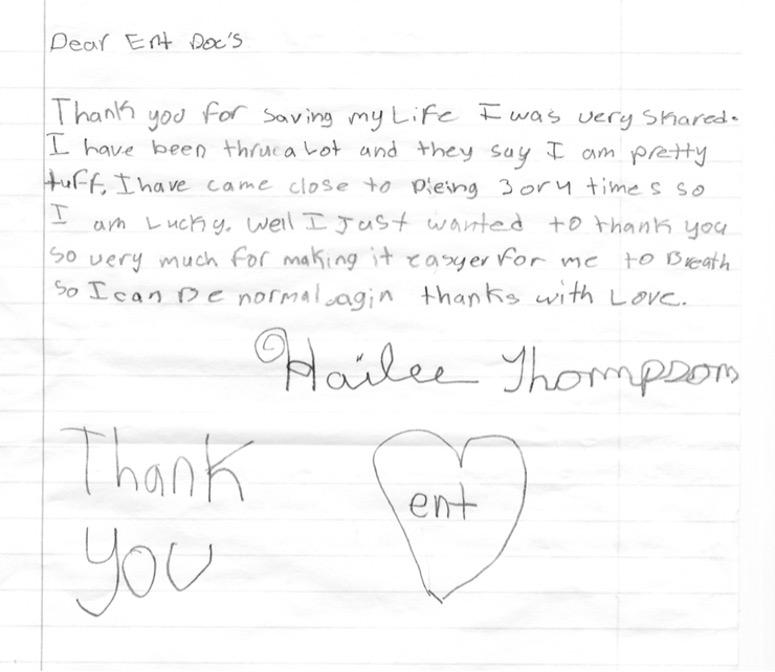 Dear Ent Doc's
Thank you for saving my Life I was very skared.
I have been thruca Lot and they say I am pretty
tuff, I have came close to Dieing 3 or 4 times so
I am Lucky. Well I Just wanted to thank you
so very much for making it easyer for me to Breath
so I can Be normal agin thanks with Love.
Hailee Thompson
Thank
you
ent